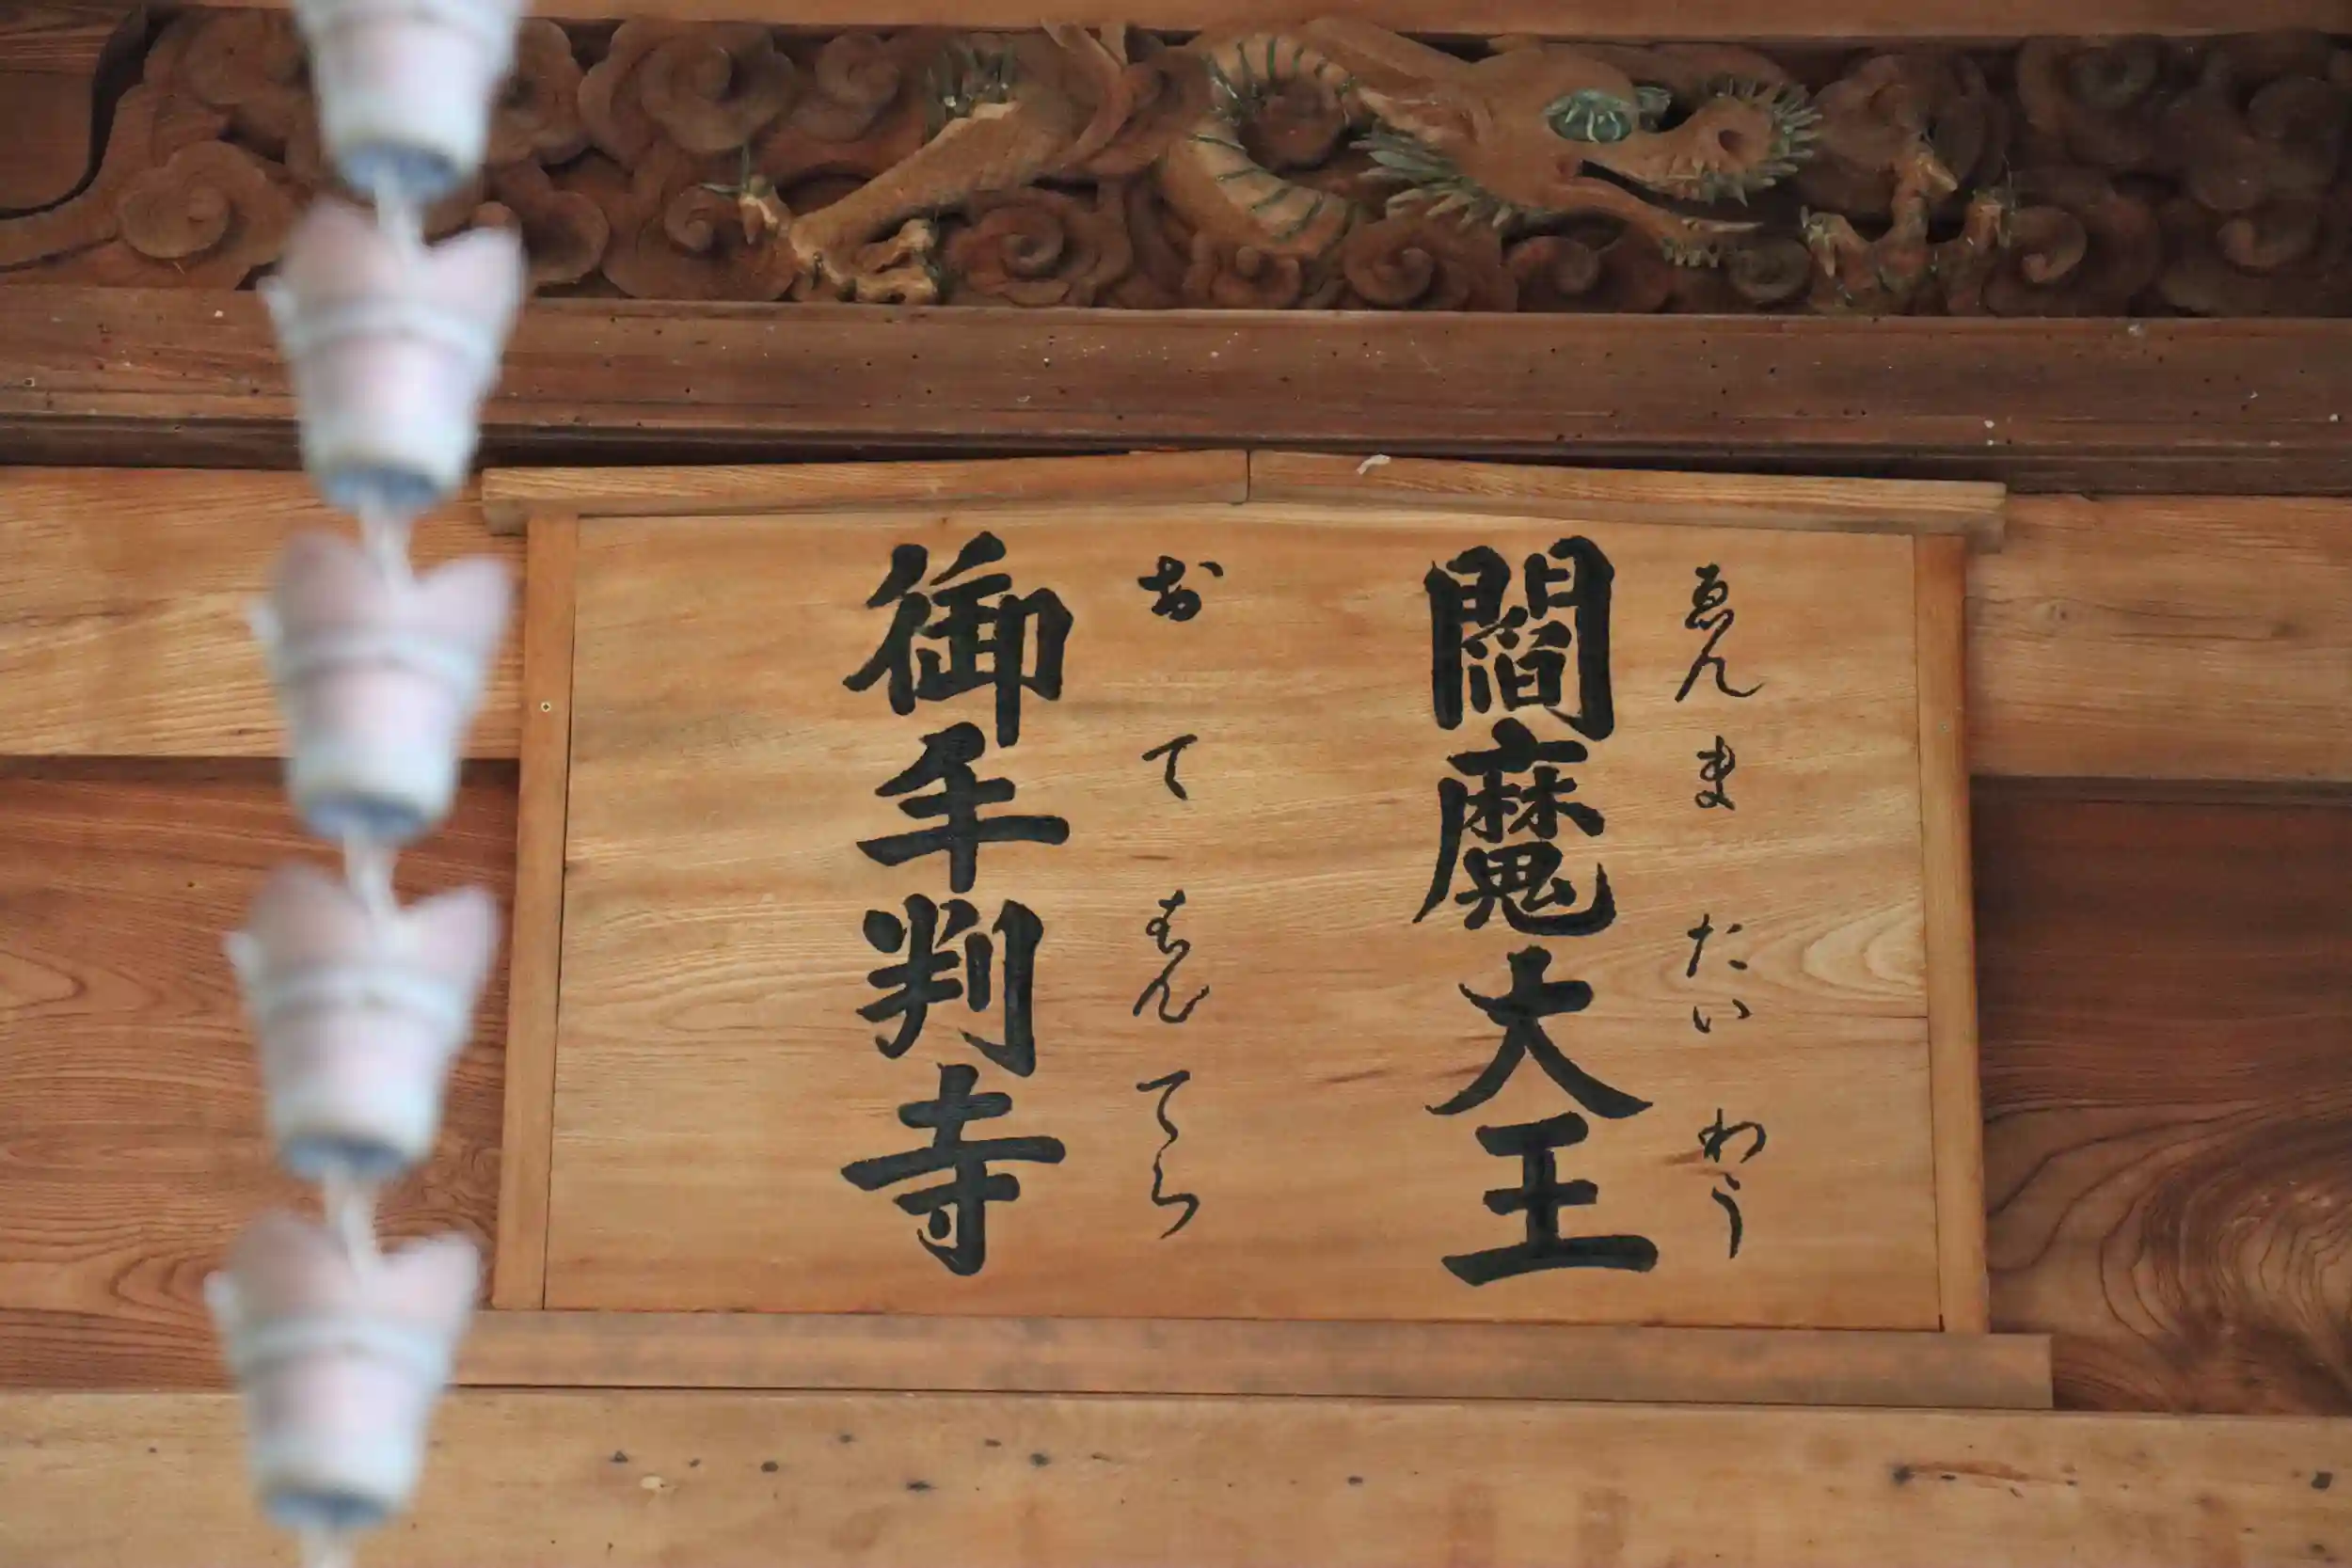 ゑんまたいわう
閻魔大王
おてはんてら
御手判寺